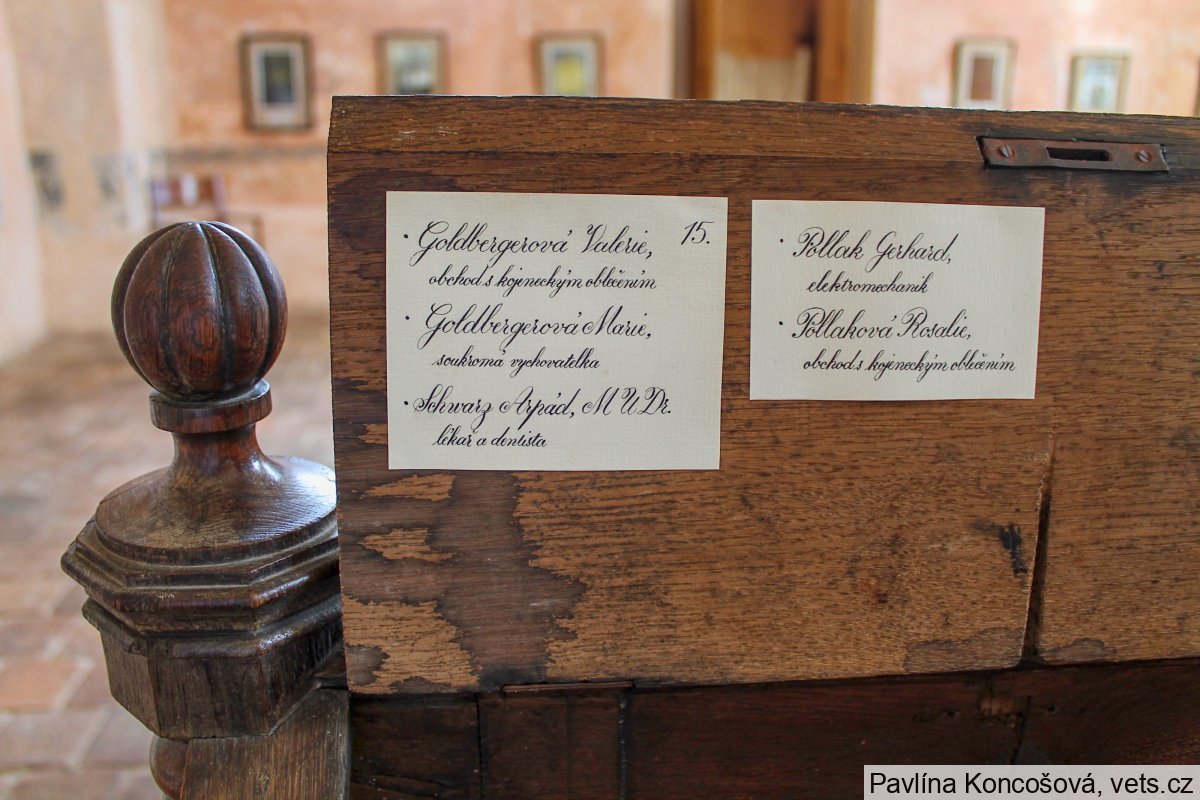 · Goldbergerová Valerie, 15.
obchod s kojeneckým oblečením
· Goldbergerová Marie,
soukromá vychovatelka
· Schwarz Arpád, MUDr.
lékař a dentista
· Pollak Gerhard,
elektromechanik
· Pollaková Rosalie,
obchod s kojeneckým oblečením
Pavlína Koncošová, vets.cz